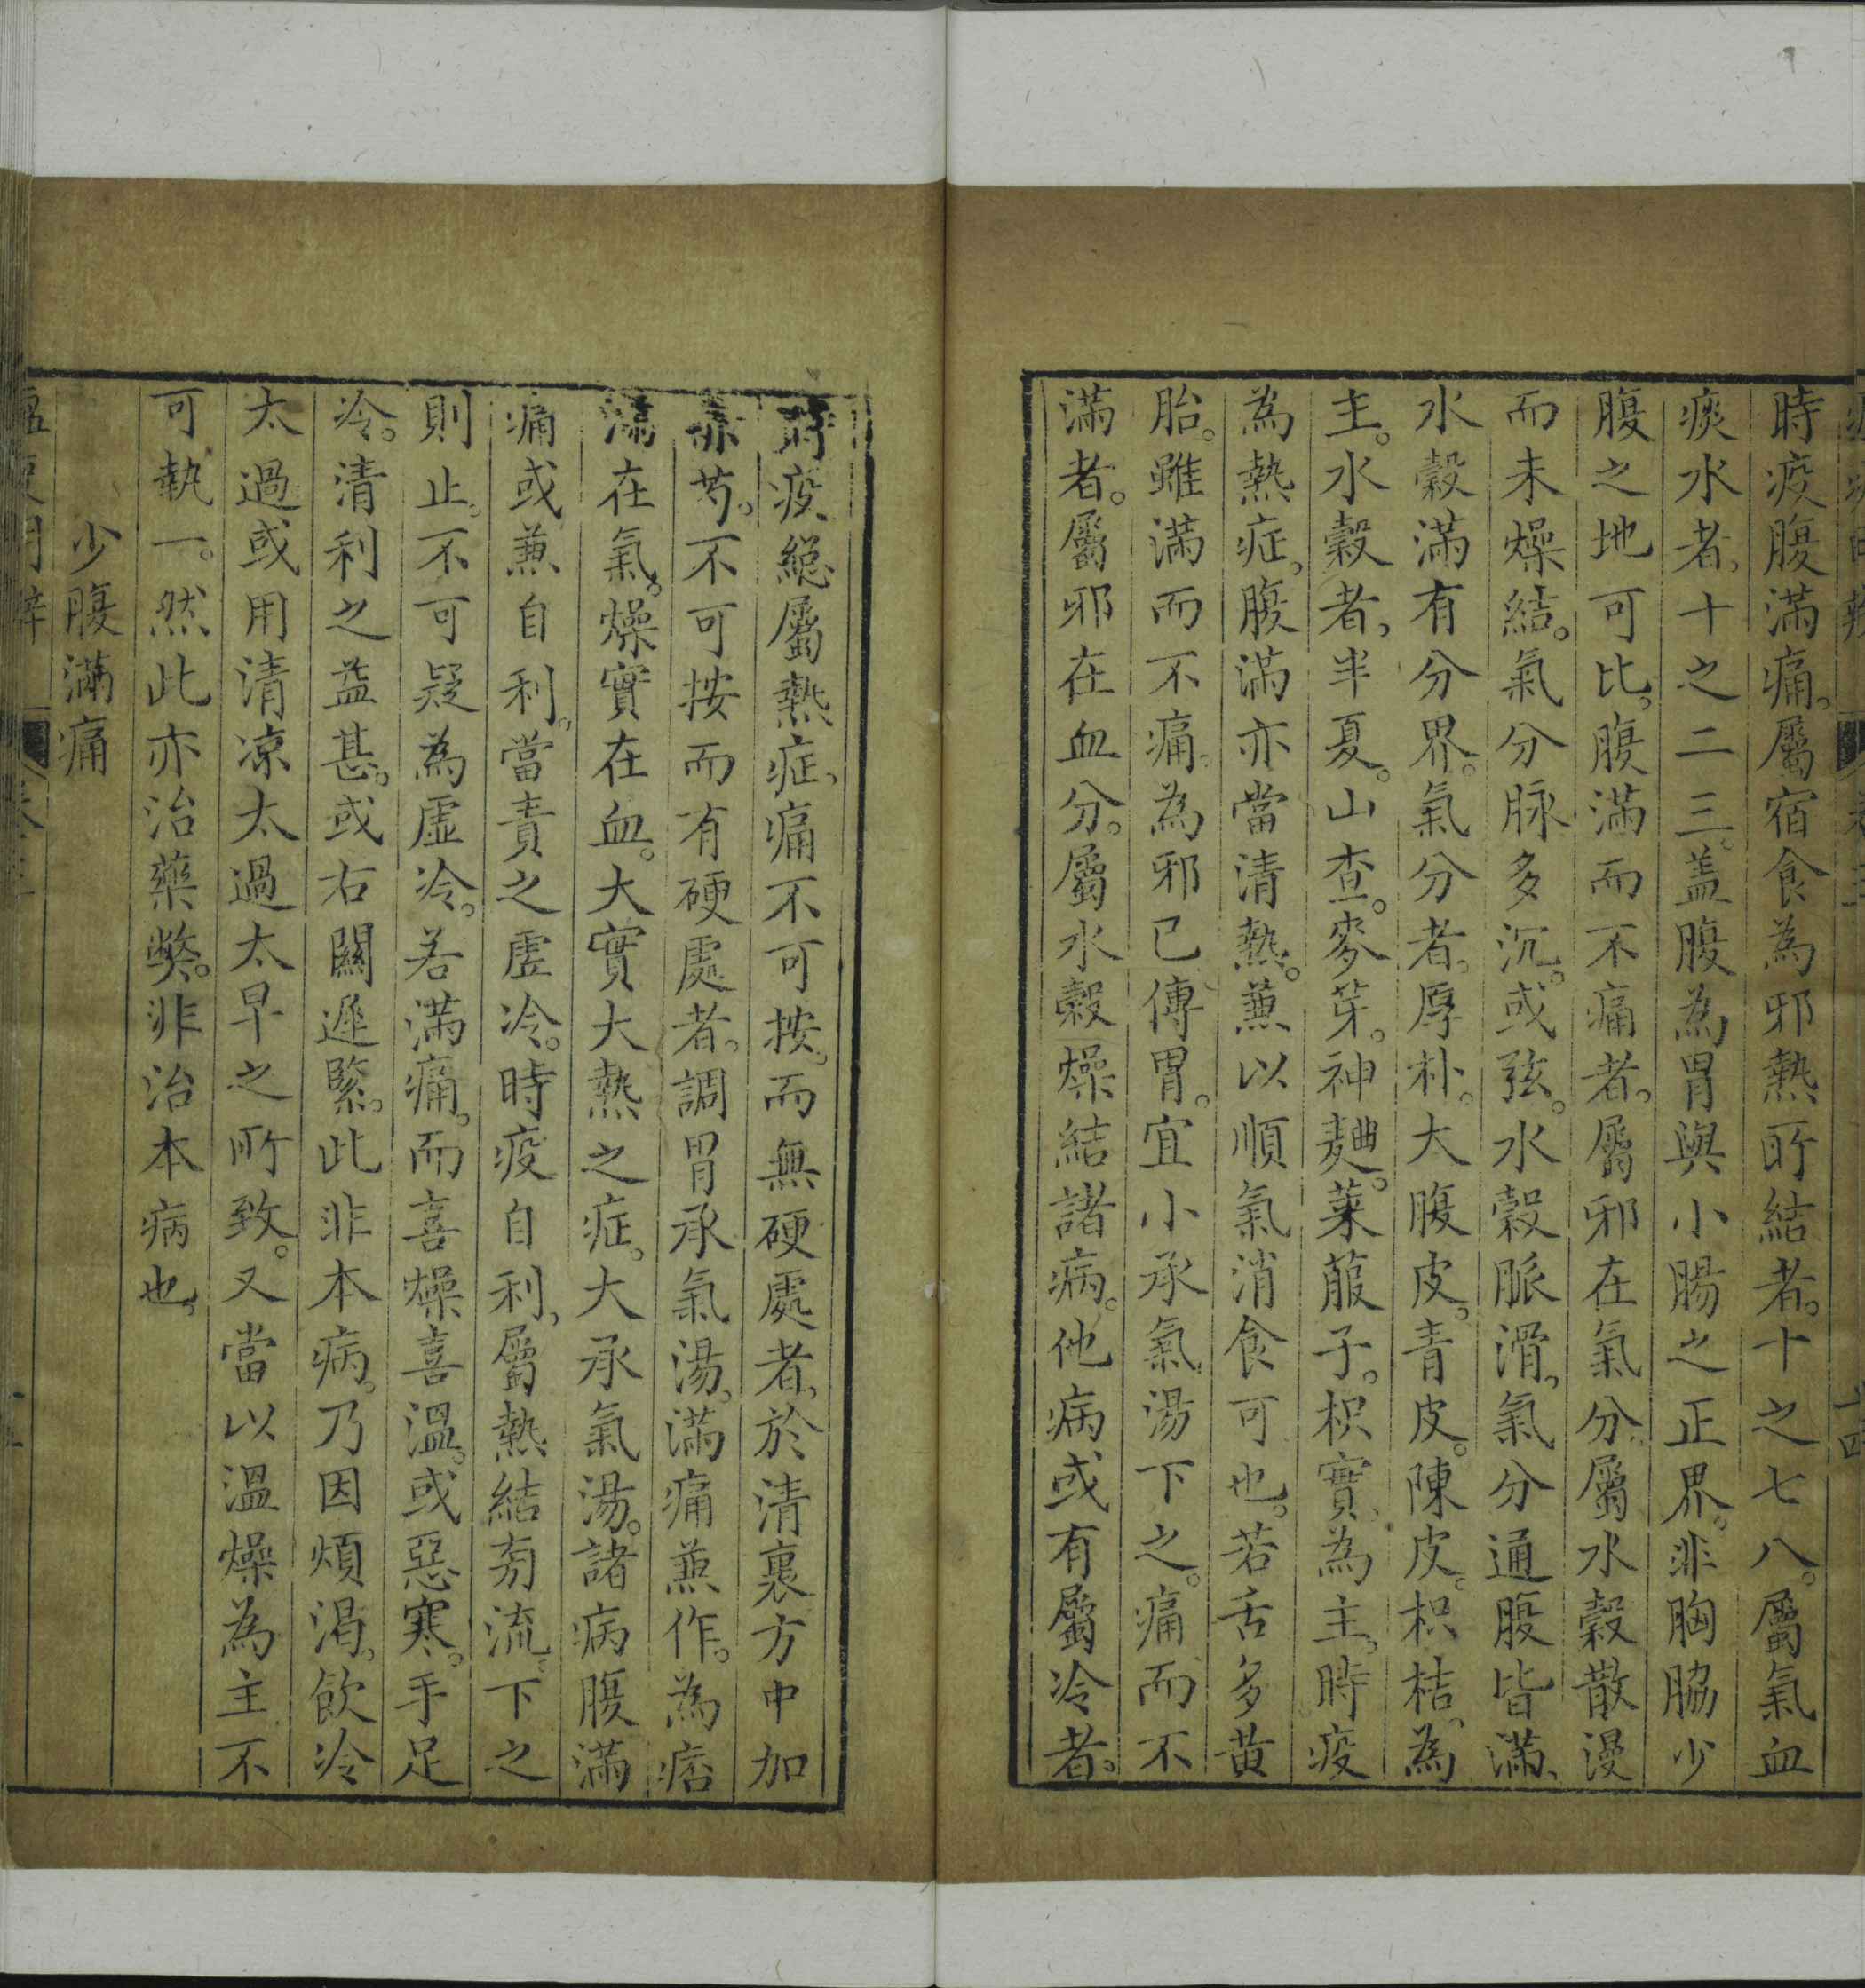 時疫腹滿痛。屬宿食為邪熱所結者。十之七八。屬氣血
痰水者。十之二三。盖腹為胃與小腸之正界。非胸脇少
腹之地可比。腹滿而不痛者。屬邪在氣分。屬水穀散漫
而未燥結。氣分脉多沉。或弦。水穀脈滑。氣分通腹皆滿、
水穀滿有分界。氣分者。厚朴。大腹皮。青皮。陳皮。枳桔。為
主。水穀者。半夏。山查。麥芽。神麯。萊菔子。枳實為主。時疫
為熱症。腹滿亦當清熱。蒹以順氣消食可也。若舌多黄
胎。雖滿而不痛。為邪已傳胃。宜小承氣湯下之。痛而不
滿者。屬邪在血分。屬水穀燥結諸病。他病或有屬冷者。
時疫総屬熱症、痛不可按。而無硬處者、於清裏方中加
赤芍。不可按而有硬處者。調胃承氣湯。滿痛蒹作。為痞
滿在氣。燥實在血。大實大熱之症。大承氣湯。諸病腹滿
痛或蒹自利。當責之虛冷。時疫自利、屬熱結旁流。下之
則止。不可疑為虛冷。若滿痛。而喜燥喜溫。或惡寒。手足
冷。清利之益甚。或右關遲緊。此非本病。乃因煩渴。飲冷
太過或用清凉太過太早之所致。又當以溫燥為主不
可執一。然此亦治藥弊。非治本病也。
少腹滿痛